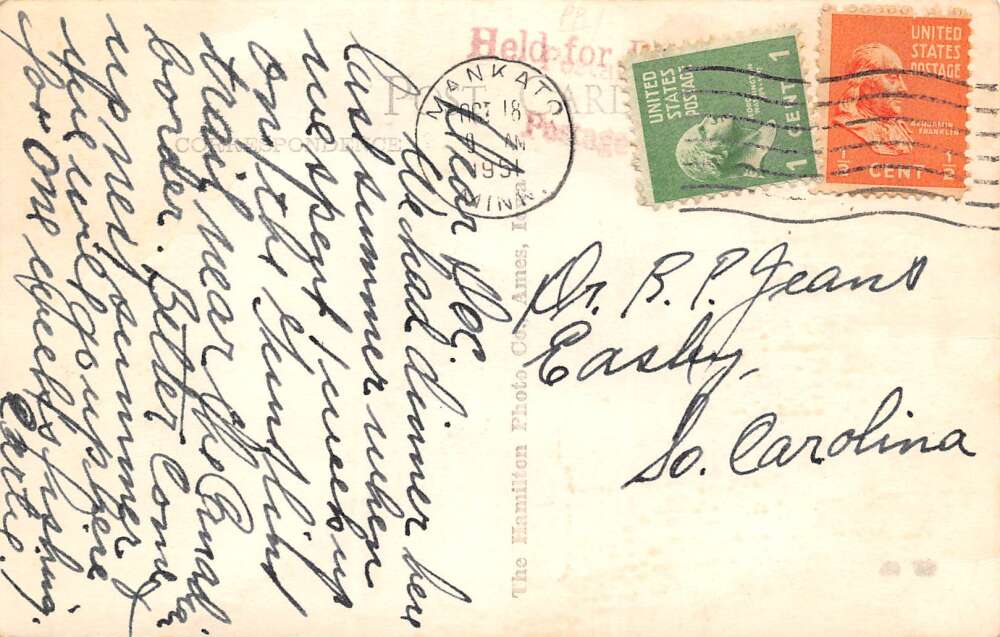 Held for
Postage
MANKATO
OCT 18
AM
1951
MINN.
POST CARD
CORRESPONDENCE
UNITED STATES POSTAGE
1 CENT 1
UNITED
STATES
POSTAGE
BENJAMIN
FRANKLIN
1/2 CENT 1/2
Dear Doc.
We had dinner here
last summer when
we spent 1 week up
on the Gunflint
trail near the Canadian
border. Better Come
up next summer &
we will go up here
for one week's fishing.
The Hamilton Photo Co., Ames, Iowa
Dr. R. P. Jeans
Easley,
So. Carolina